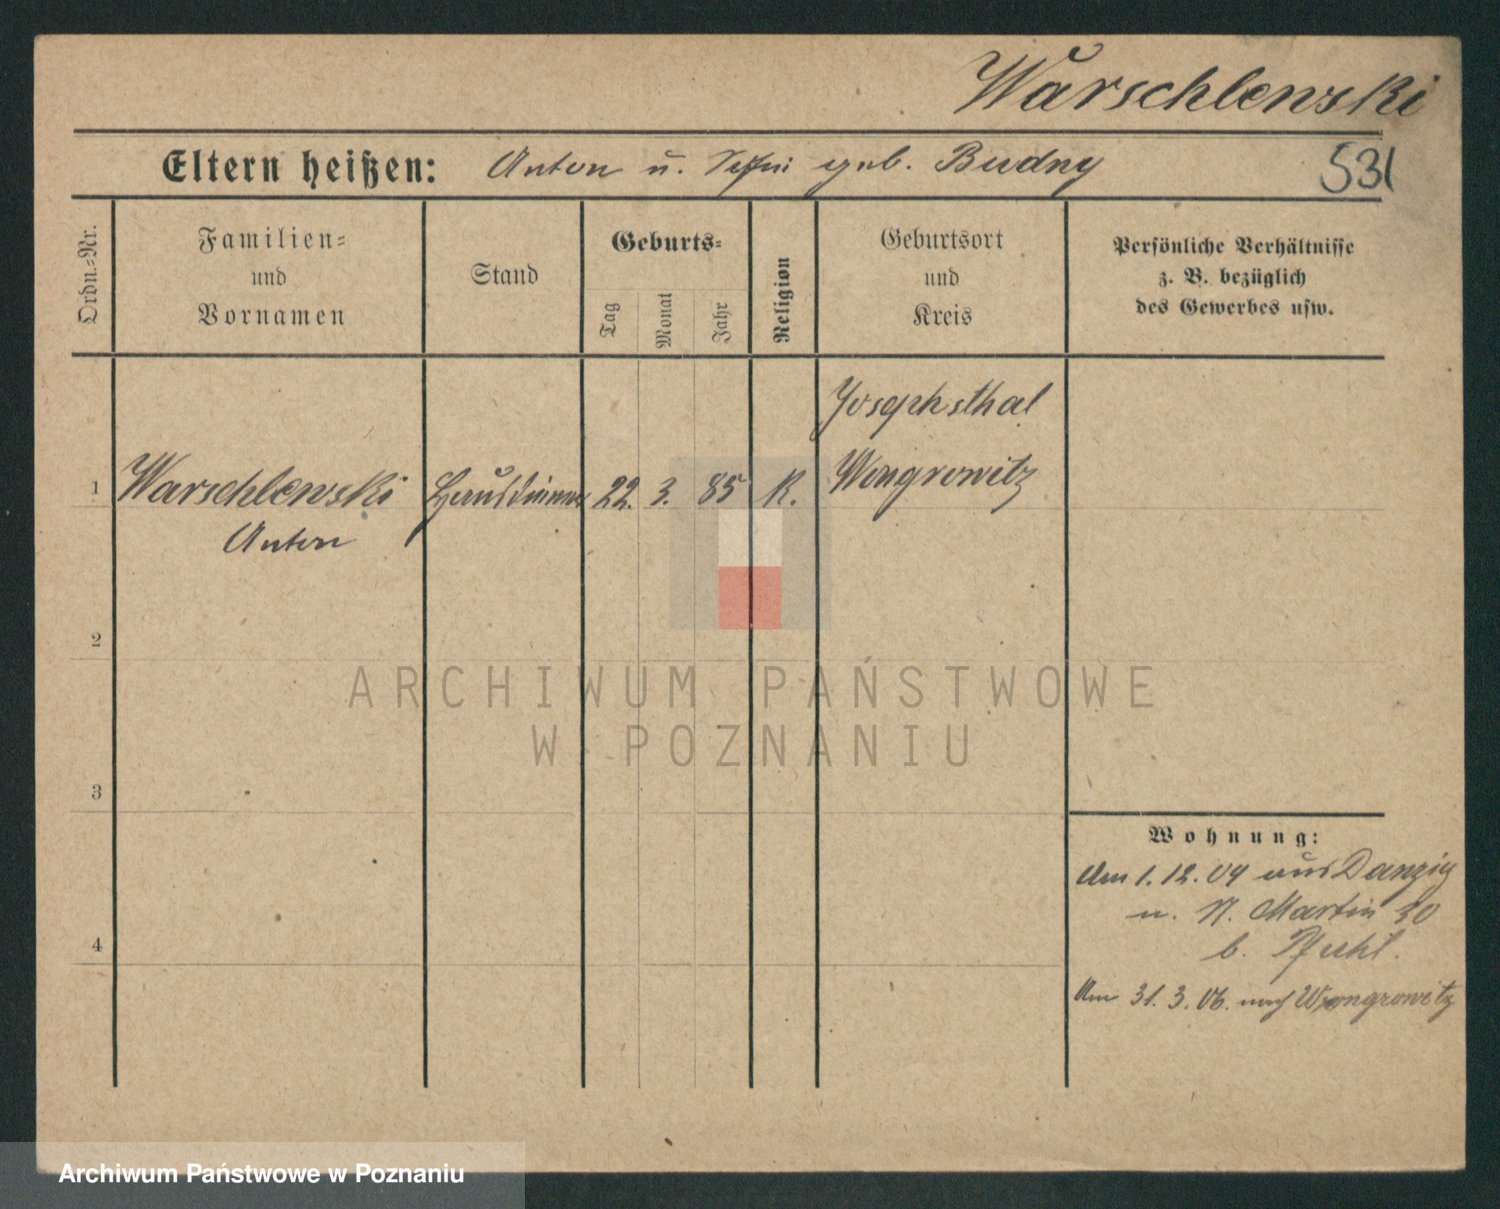 Warschlewski
Eltern heißen: Anton u. geb. Budny
531
Ordn.-Nr.
Familien-
und
Vornamen
Stand
Geburts-
Tag
Monat
Jahr
Religion
Geburtsort
und
Kreis
Persönliche Verhältnisse
z. B. bezüglich
des Gewerbes usw.
Josephsthal
1 Warschlewski Hausdiener 22. 3. 85 K. Wongrowitz
Anton
2
3
4
Wohnung:
Am 1. 12. 04 aus Danzig
n. St. Martin 30
b. Pfuhl.
Am 31. 3. 06. nach Wongrowitz
ARCHIWUM PAŃSTWOWE
W POZNANIU
Archiwum Państwowe w Poznaniu